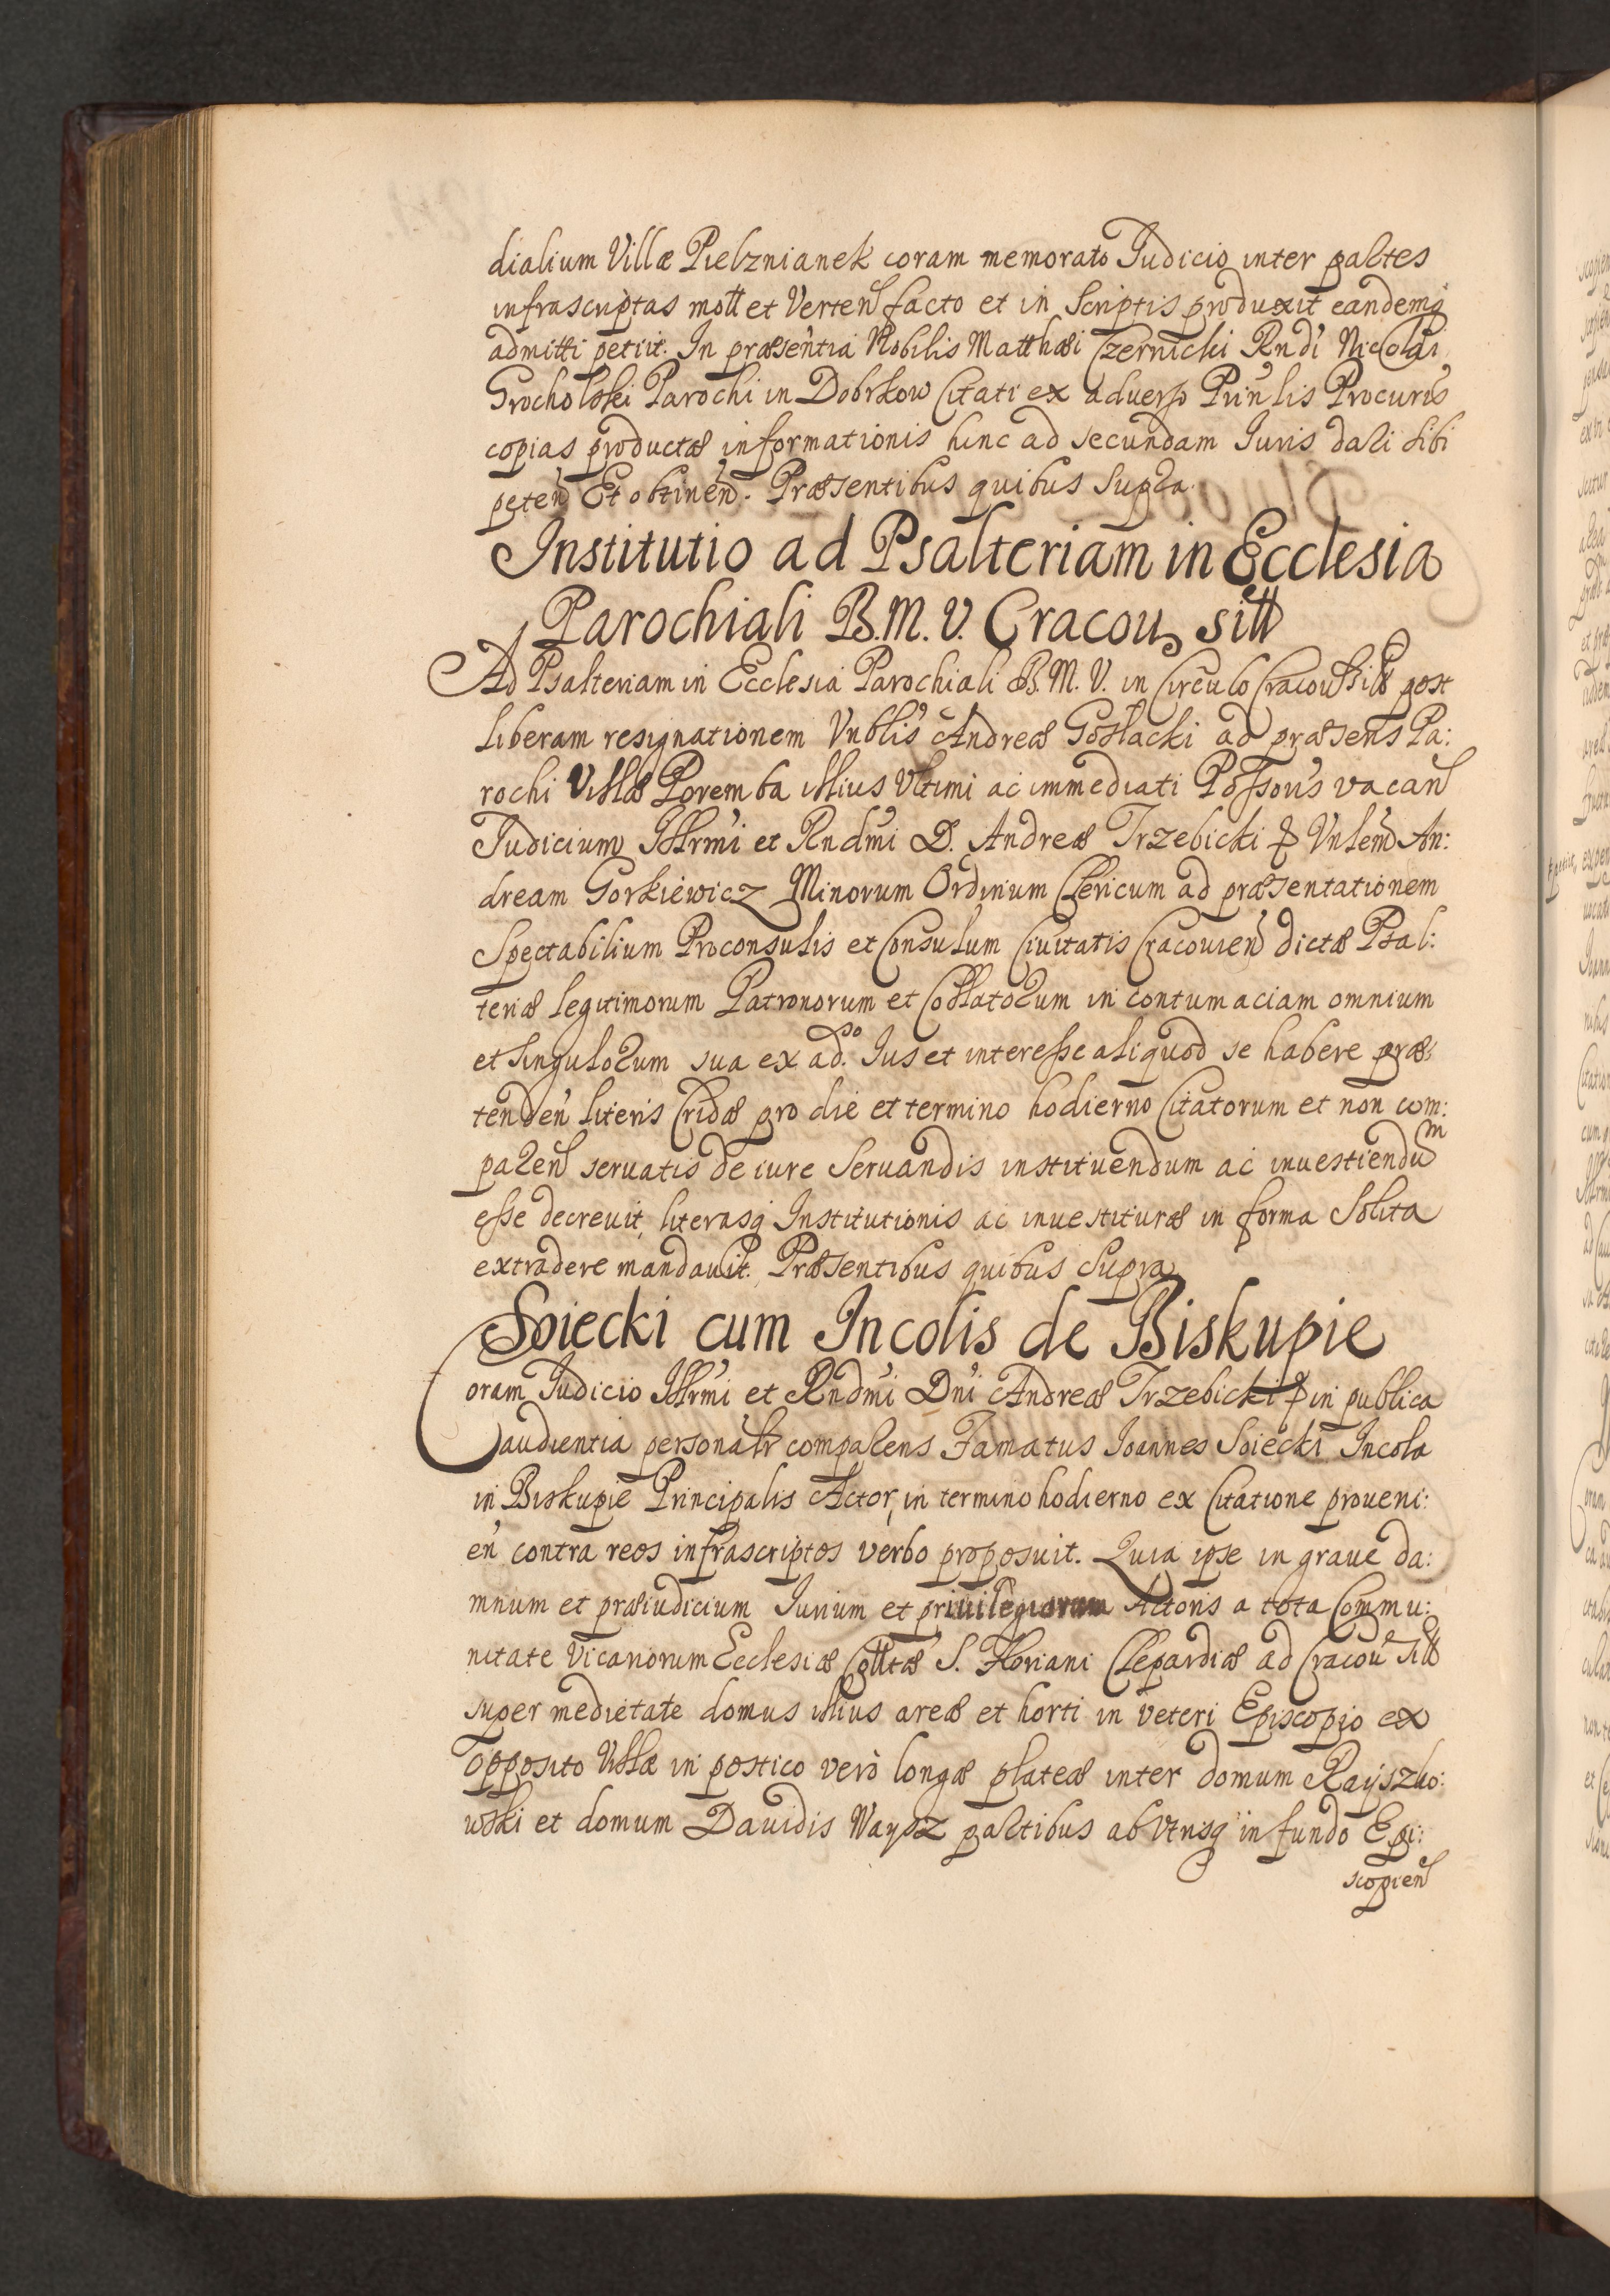 dialium Villæ Pielznianek coram memorato Judicio inter partes
infrascriptas mott et Verten facto et in Scriptis produxit eandemq
admitti petiit. In præsentia Nobilis Matthæi Czernicki Rndi Nicolai
Grocholski Parochi in Dobrkow Citati ex adverso Prin̄lis Procuris
copias productæ informationis hinc ad secundam Iuris dari sibi
peten̄ Et obtinen̄. Præsentibus quibus Supra.
Institutio ad Psalteriam in Ecclesia
Parochiali B.M.V. Cracou, sitt
Ad Psalteriam in Ecclesia Parochiali B.M.V. in Circulo Cracou sitt post
liberam resignationem Vnblis Andreæ Gosłacki ad præsens Pa:
rochi Villæ Poremba illius Vltimi ac immediati Possoris vacan
Judicium Illrmi et Rndmi D. Andreæ Trzebicki Vnlend An:
dream Gorkiewicz Minorum Ordinum Clericum ad præsentationem
Spectabilium Proconsulis et Consulum Ciuitatis Cracouien dictæ Psal:
teriæ legitimorum Patronorum et Collatorum in contumaciam omnium
et singulorum sua ex ad.so Ius et interesse aliquod se habere præ:
tenden literis Cridæ pro die et termino hodierno Citatorum et non com:
paren seruatis de iure Seruandis instituendum ac inuestiendum
esse decreuit, literasq Institutionis ac inuestituræ in forma Solita
extradere mandauit. Præsentibus quibus Supra
Soiecki cum Incolis de Biskupie
Coram Judicio Illrmi et Rndmi Dni Andreæ Trzebicki in publica
audientia personalr comparens Famatus Ioannes Soiecki Incola
in Biskupie Principalis Actor, in termino hodierno ex Citatione proueni:
en contra reos infrascriptos verbo proposuit. Quia ipse in graue da:
mnum et præiudicium Iurium et priuilegiorum Actoris a tota Commu:
nitate Vicariorum Ecclesiæ Colltæ S. Floriani Clepardiæ ad Cracou sitt
super medietate domus illius areæ et horti in veteri Episcopio ex
opposito Villæ in postico verò longæ plateæ inter domum Rayszko:
wski et domum Dauidis Waysz partibus ab Vtrisq in fundo Epi:
scopien